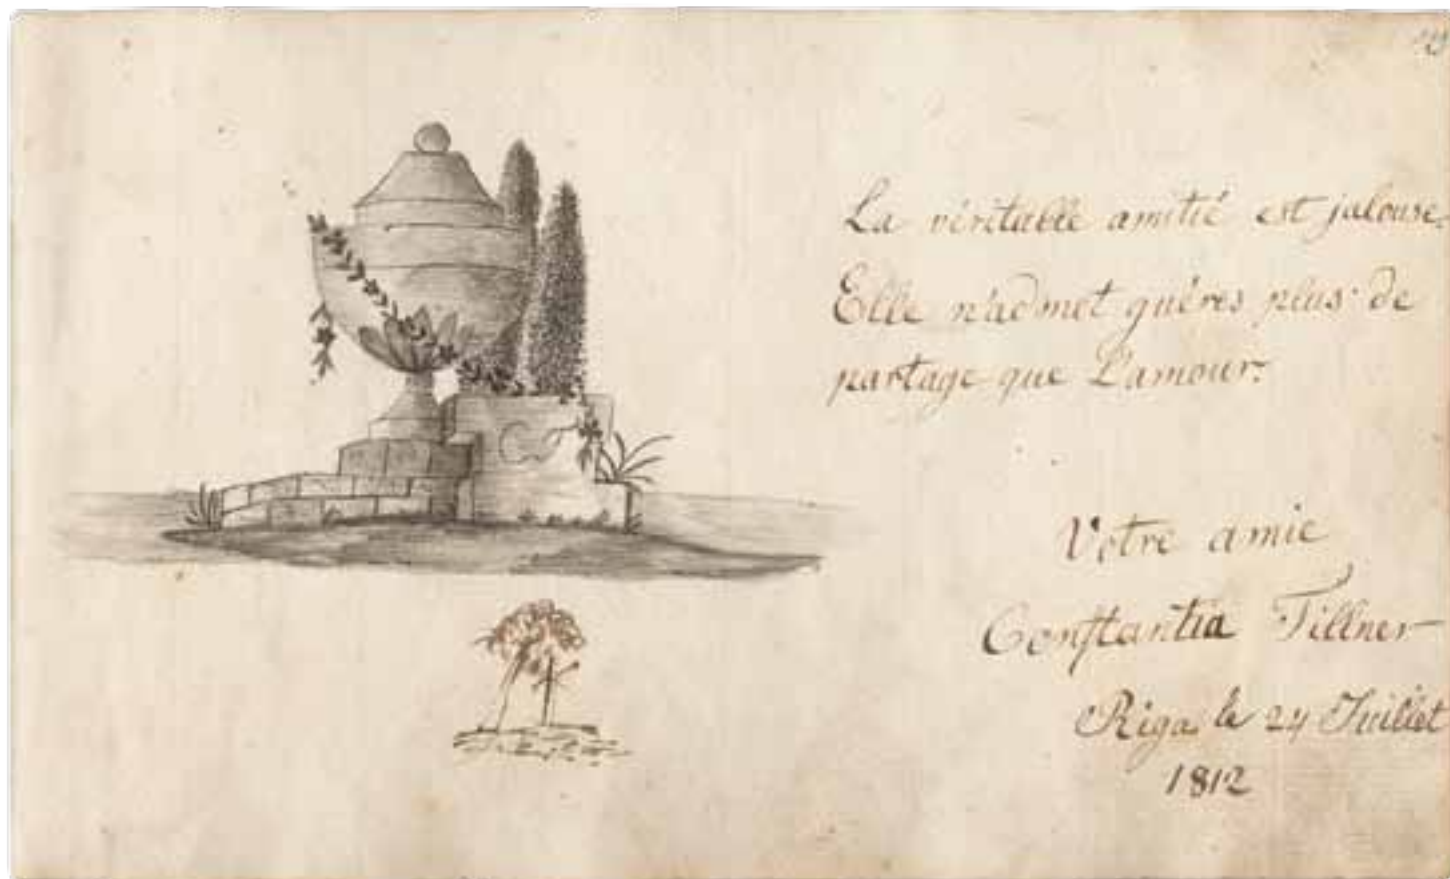 La véritable amitié est jalouse.
Elle n'admet guéres plus de
partage que L'amour.
Votre amie
Constantia Tillner
Riga le 24 Juillet
1812